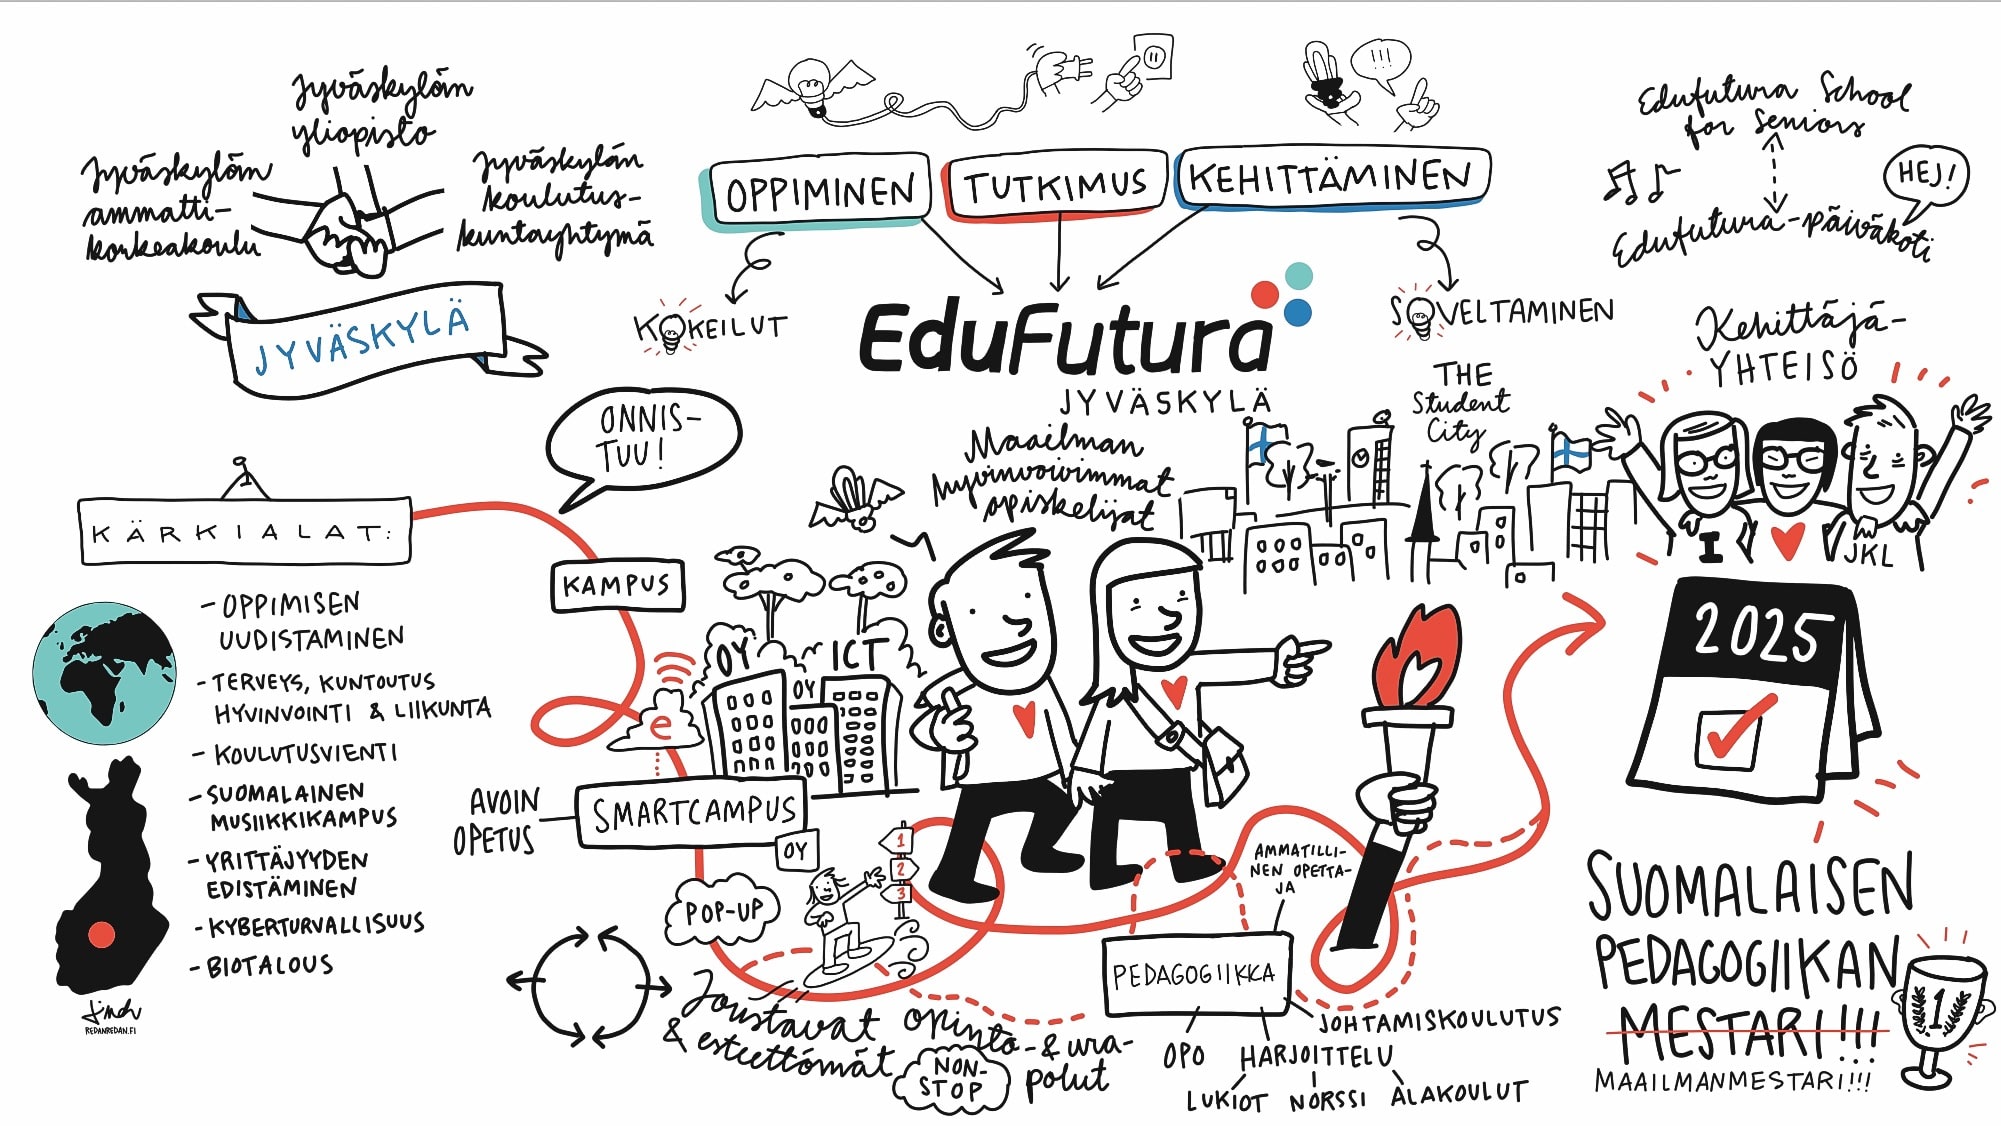 Jyväskylän
yliopisto
Jyväskylän
ammatti-
korkeakoulu
Jyväskylän
koulutus-
kuntayhtymä
JYVÄSKYLÄ
OPPIMINEN
TUTKIMUS
KEHITTÄMINEN
!!!
KOKEILUT
SOVELTAMINEN
EduFutura
JYVÄSKYLÄ
Edufutura School
for Seniors
HEJ!
Edufutura-päiväkoti
Kehittäjä-
YHTEISÖ
I
JKL
THE
Student
City
Maailman
hyvinvoivimmat
opiskelijat
ONNIS-
TUU!
KÄRKIALAT:
- OPPIMISEN
UUDISTAMINEN
- TERVEYS, KUNTOUTUS
HYVINVOINTI & LIIKUNTA
- KOULUTUSVIENTI
- SUOMALAINEN
MUSIIKKIKAMPUS
- YRITTÄJYYDEN
EDISTÄMINEN
- KYBERTURVALLISUUS
- BIOTALOUS
REDANREDAN.FI
KAMPUS
OY
ICT
OY
e
AVOIN
OPETUS
SMARTCAMPUS
OY
POP-UP
1
2
3
Joustavat opinto-& ura-
& esteettömät polut
NON-
STOP
AMMATILLI-
NEN OPETTA-
JA
PEDAGOGIIKKA
OPO
HARJOITTELU
JOHTAMISKOULUTUS
LUKIOT NORSSI ALAKOULUT
2025
SUOMALAISEN
PEDAGOGIIKAN
MESTARI!!!
MAAILMANMESTARI!!!
1